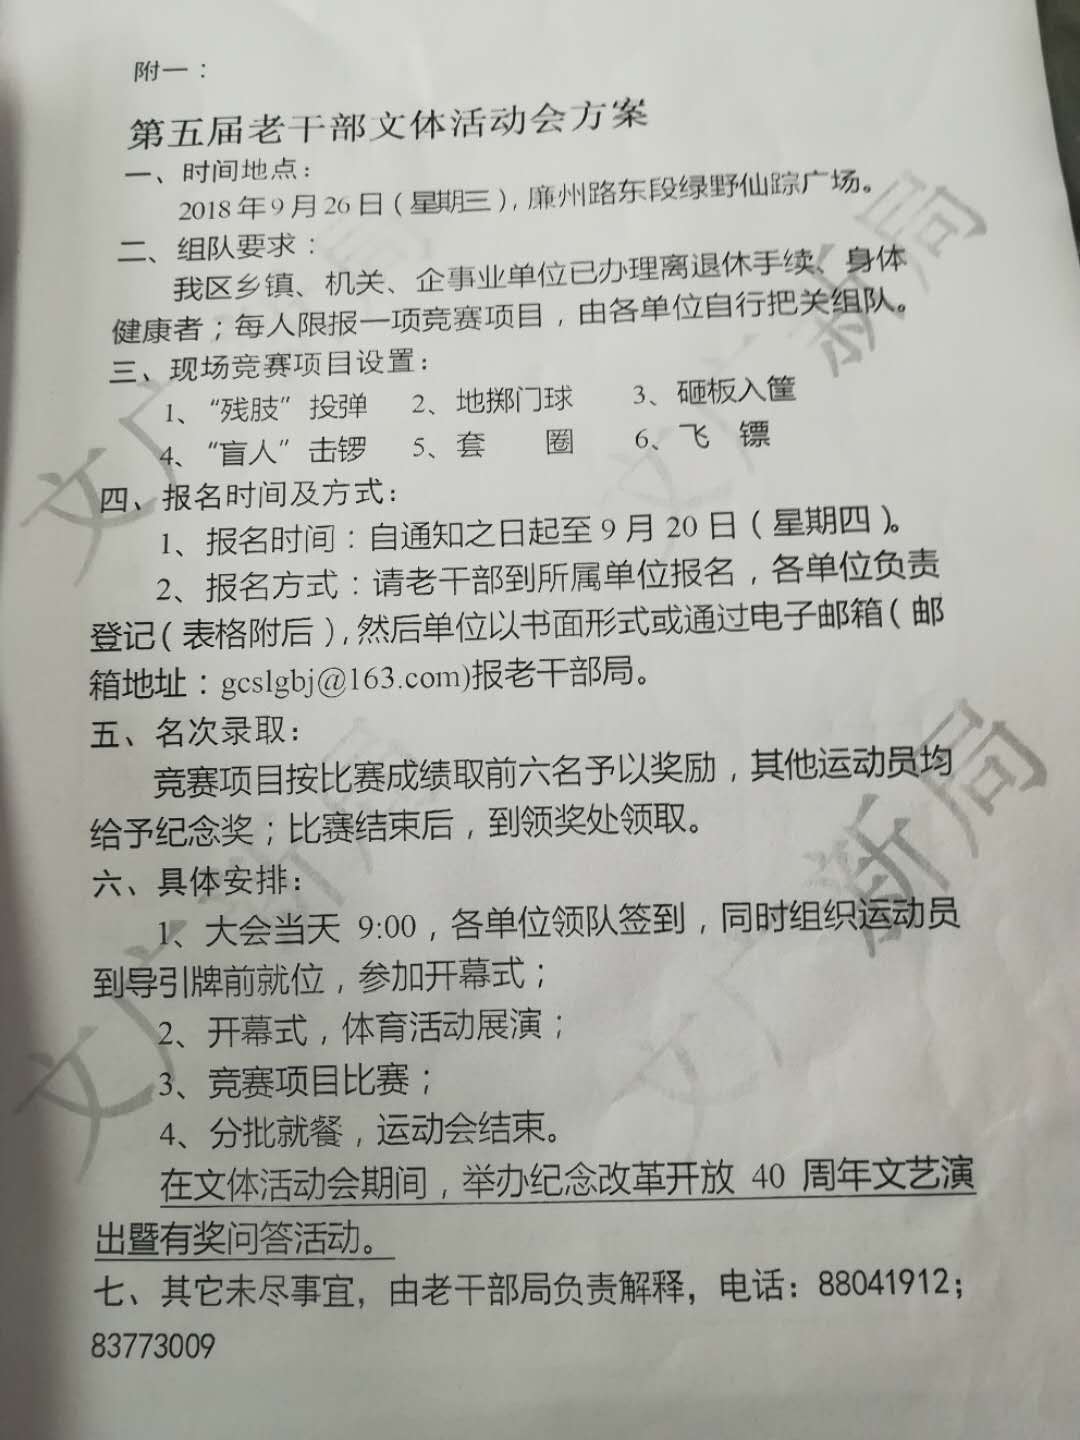 附一：
第五届老干部文体活动会方案
一、时间地点：
2018年9月26日（星期三），廉州路东段绿野仙踪广场。
二、组队要求：
我区乡镇、机关、企事业单位已办理离退休手续、身体
健康者；每人限报一项竞赛项目，由各单位自行把关组队。
三、现场竞赛项目设置：
1、“残肢”投弹 2、地掷门球 3、砸板入筐
4、“盲人”击锣 5、套 圈 6、飞 镖
四、报名时间及方式：
1、报名时间：自通知之日起至9月20日（星期四）。
2、报名方式：请老干部到所属单位报名，各单位负责
登记（表格附后），然后单位以书面形式或通过电子邮箱（邮
箱地址：gcslgbj@163.com)报老干部局。
五、名次录取：
竞赛项目按比赛成绩取前六名予以奖励，其他运动员均
给予纪念奖；比赛结束后，到领奖处领取。
六、具体安排：
1、大会当天 9:00，各单位领队签到，同时组织运动员
到导引牌前就位，参加开幕式；
2、开幕式，体育活动展演；
3、竞赛项目比赛；
4、分批就餐，运动会结束。
在文体活动会期间，举办纪念改革开放 40 周年文艺演
出暨有奖问答活动。
七、其它未尽事宜，由老干部局负责解释，电话：88041912；
83773009
文广新局
文广新局
文广新局
文广新局